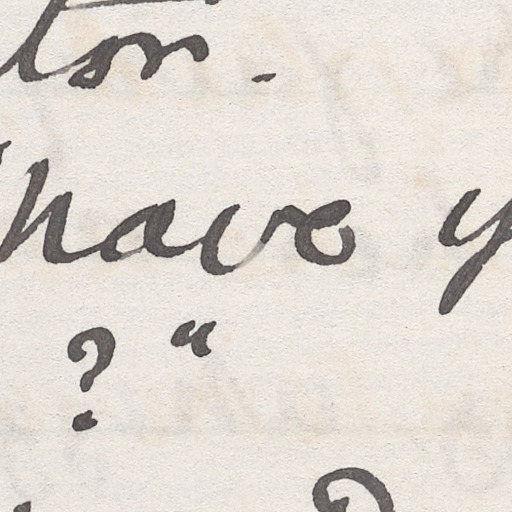 tor.
have y
?"